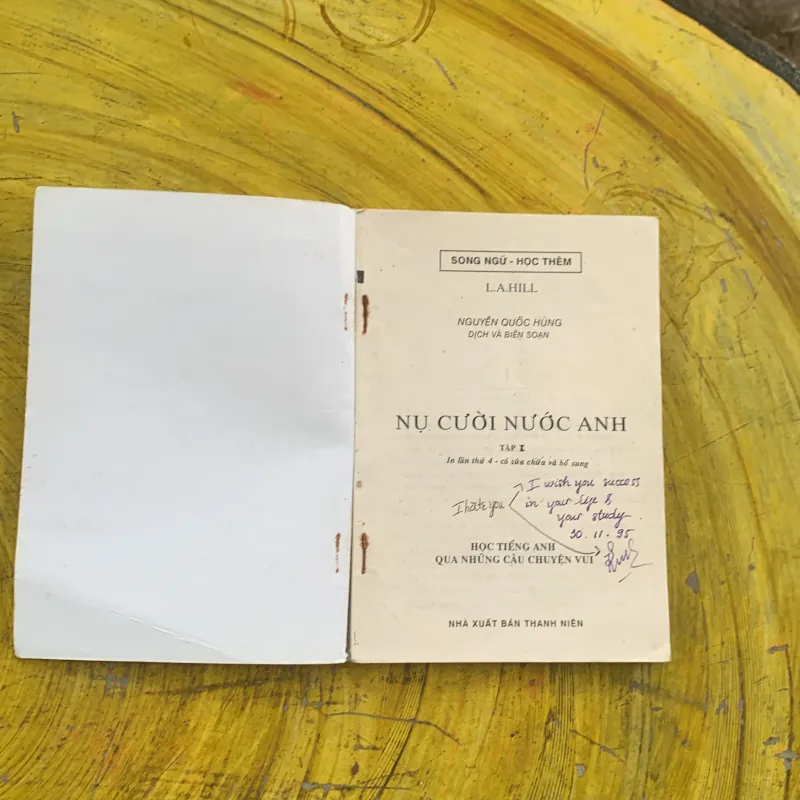 SONG NGỮ - HỌC THÊM
L.A.HILL
NGUYỄN QUỐC HÙNG
DỊCH VÀ BIÊN SOẠN
NỤ CƯỜI NƯỚC ANH
TẬP I
In lần thứ 4 - có sửa chữa và bổ sung
I wish you success
I hate you
in your life &
your study
30.11.95
HỌC TIẾNG ANH
QUA NHỮNG CÂU CHUYỆN VUI
NHÀ XUẤT BẢN THANH NIÊN